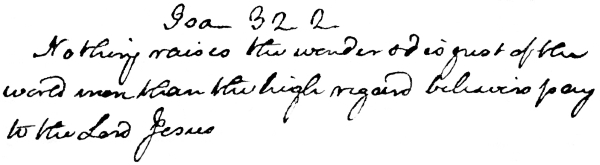 Isa 32 2
Nothing raises the wonder & disgust of the
world more than the high regard believers pay
to the Lord Jesus